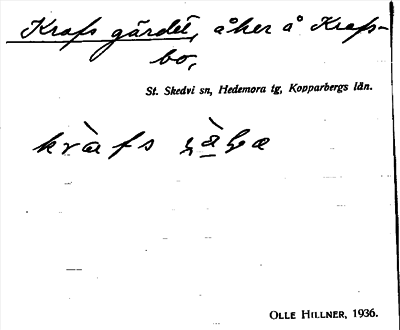 Krafs gärdet, åker å Krafs-
bo,
St. Skedvi sn, Hedemora tg, Kopparbergs län.
OLLE HILLNER, 1936.